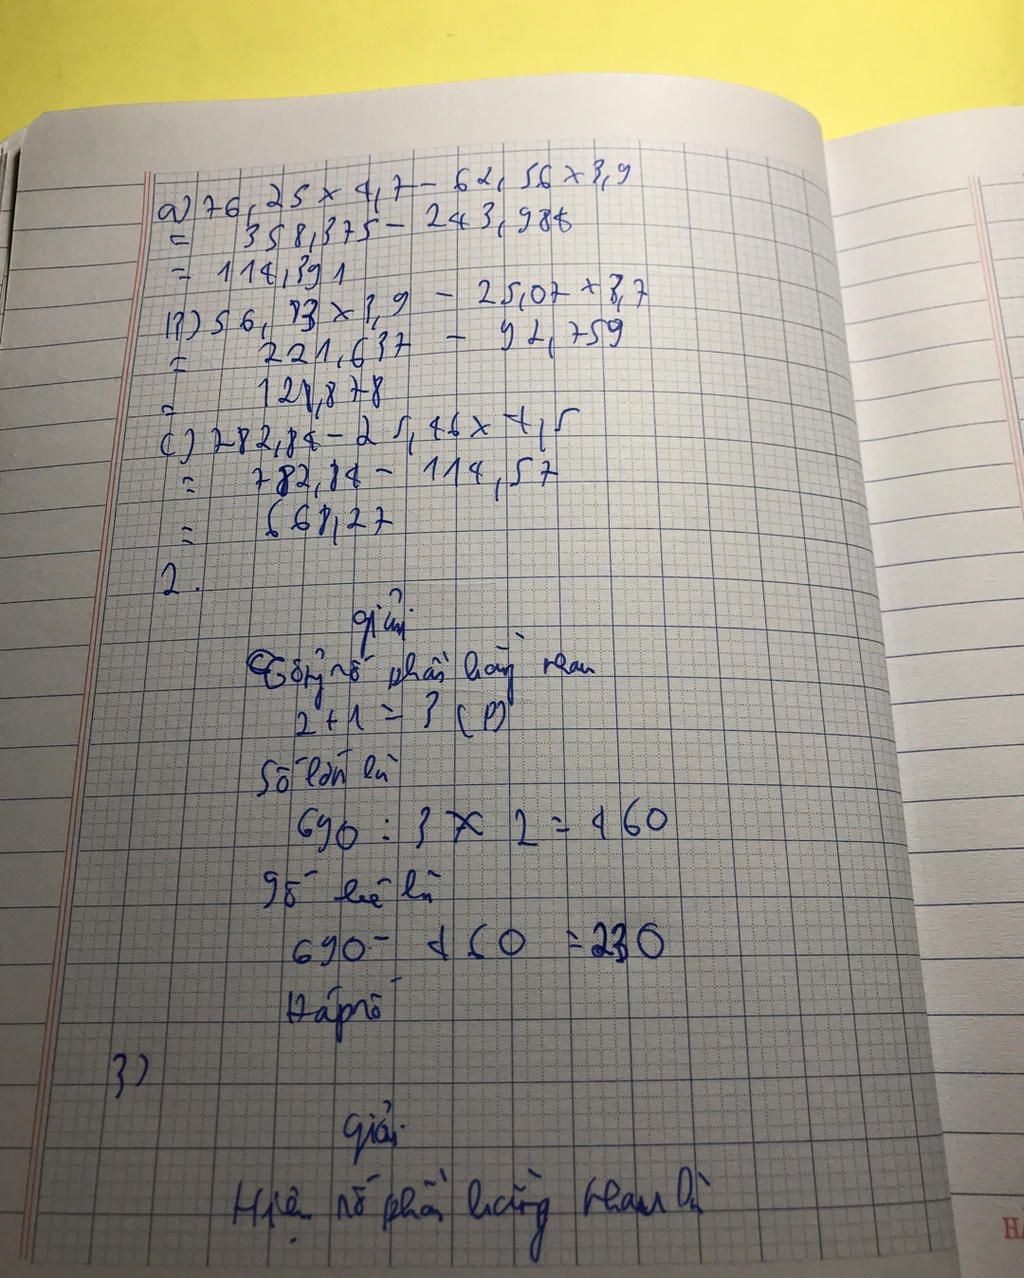 a) 76,25 x 4,7 - 62,56 x 3,9
= 358,375 - 243,984
= 114,391
B) 56,83 x 3,9 - 25,07 x 3,7
= 221,637 - 92,759
= 128,878
c) 782,84 - 25,46 x 4,5
= 782,84 - 114,57
= 668,27
2.
giải
Tổng số phần bằng nhau
2 + 1 = 3 (P)
Số lớn là
690 : 3 x 2 = 460
Số bé là
690 - 460 = 230
Đáp số
3)
giải
Hiệu số phần bằng nhau là
HA